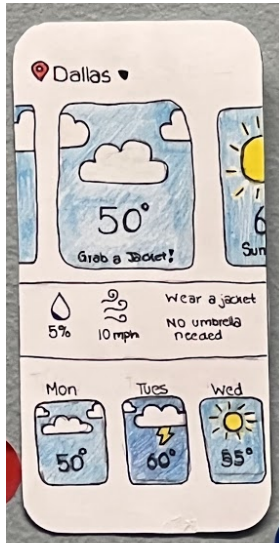 Dallas
50°
Grab a Jacket!
6
Sun
5%
10 mph
Wear a jacket
No umbrella
needed
Mon
Tues
Wed
50°
60°
55°